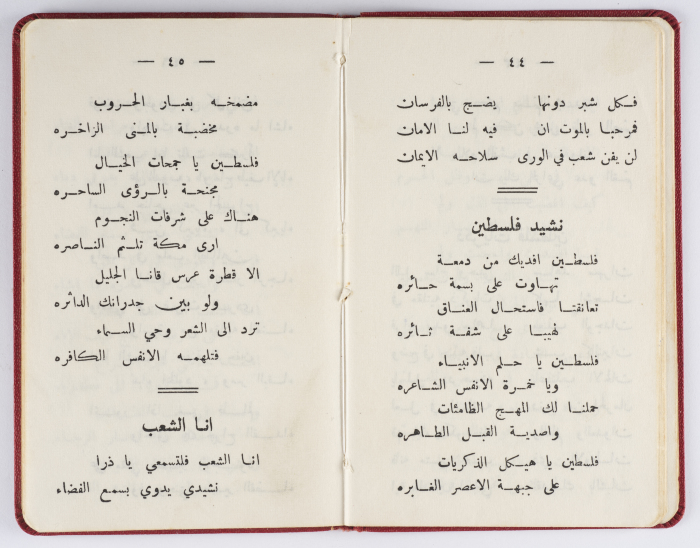 — ٤٤ —
فكل شبر دونها يضج بالفرسات
فمرحبا بالموت ان فيه لنا الامان
لن يفن شعب في الورى سلاحه الايمان
نشيد فلسطين
فلسطين افديك من دمعة
تهاوت على بسمة حائره
تعانقتا فاستحال العناق
لهيبا على شفة ثائره
فلسطين يا حلم الانبياء
ويا خمرة الانفس الشاعره
حملنا لك المهج الظامئات
واصدية القبل الطاهره
فلسطين يا هيكل الذكريات
على جبهة الاعصر الغابره
— ٤٥ —
مضمخه بغبار الحروب
مخضبة بالمنى الزاخره
فلسطين يا جمحات الخيال
مجنحة بالرؤى الساحره
هناك على شرفات النجوم
ارى مكة تلثم الناصره
الا قطرة عرس قانا الجليل
ولو بين جدرانك الدائره
ترد الى الشعر وحي السماء
فتلهمه الانفس الكافره
انا الشعب
انا الشعب فلتسمعي يا ذرا
نشيدي يدوي بسمع الفضاء